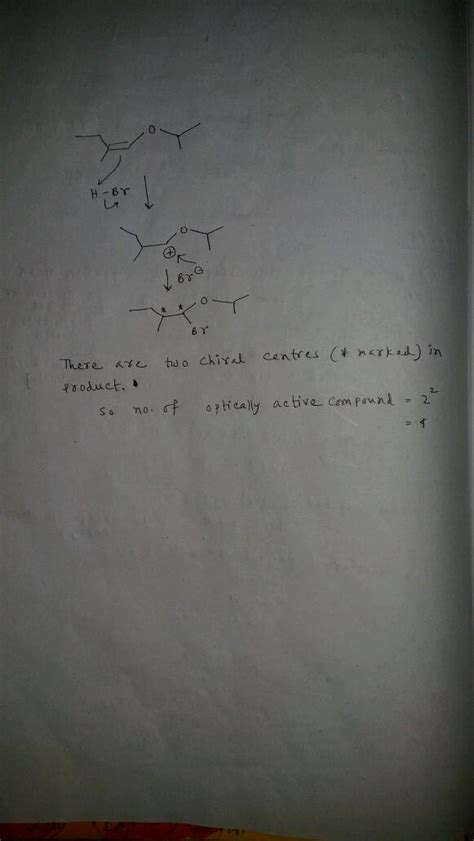 O
H-Br
O
⊕
Br⊖
* *
O
Br
There are two chiral centres (* marked) in
product.
so no. of optically active compound = 2²
= 4